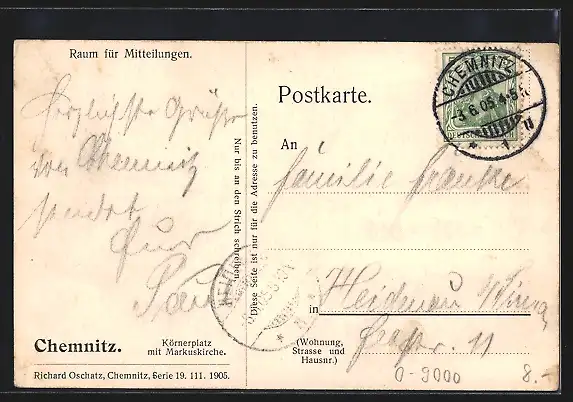 Raum für Mitteilungen.
Herzlichste Grüße
von Chemnitz
sendet
Euer
Paul
Chemnitz.
Körnerplatz
mit Markuskirche.
Richard Oschatz, Chemnitz, Serie 19. 111. 1905.
Nur bis an den Strich schreiben.
Diese Seite ist nur für die Adresse zu benutzen.
Postkarte.
CHEMNITZ
-3.6.05.4-5N
* 1
An
Familie Franke
in Heidenau
11
(Wohnung,
Strasse und
Hausnr.)
0-9000
8.-